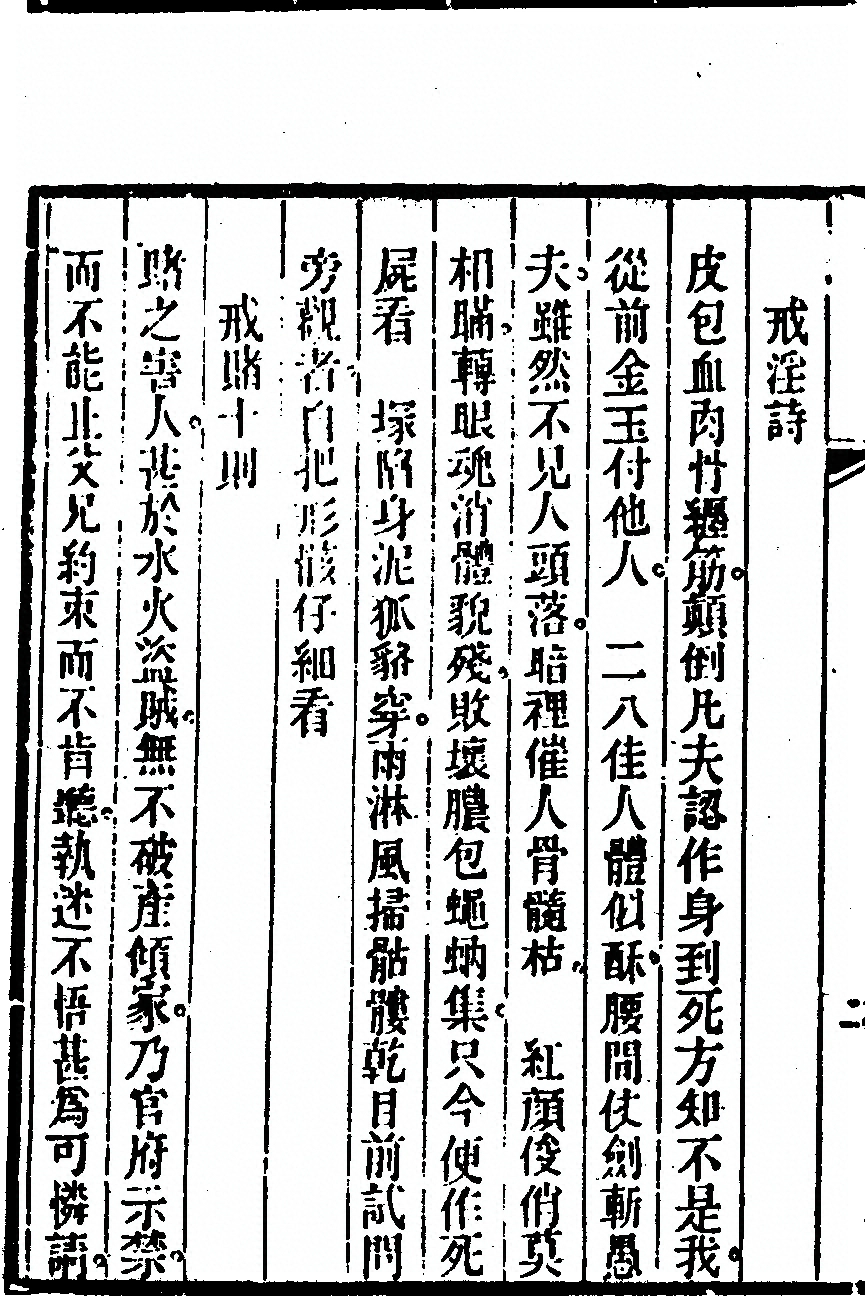 戒淫詩
皮包血肉骨纏筋。顛倒凡夫認作身到死方知不是我。
從前金玉付他人。　二八佳人體似酥。腰間仗劍斬愚
夫。雖然不見人頭落。暗裡催人骨髓枯。　紅顔俊俏莫
相瞞。轉眼魂消體貌殘。敗壞膿包蝇蚋集。只今便作死
屍看　塚陷身泥狐貉穿。雨淋風掃骷髏乾目前試問
旁觀者。自把形骸仔細看
戒賭十則
賭之害人。甚於水火盜賊。無不破產傾家。乃官府示禁。
而不能止父兄約束而不肯聽。執迷不悟甚為可憐請。
二